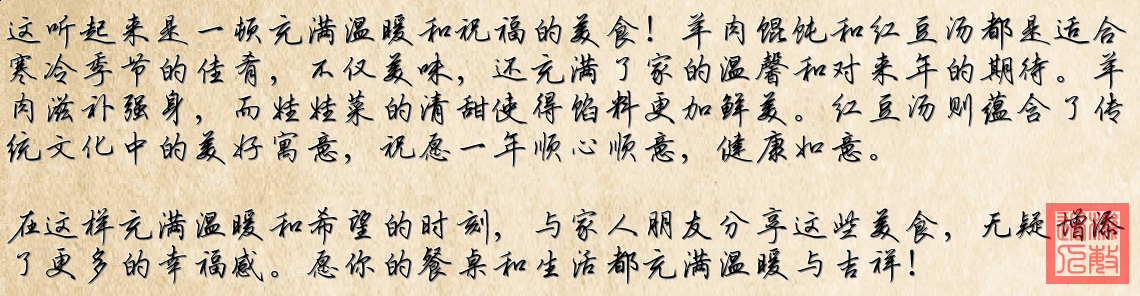 这听起来是一顿充满温暖和祝福的美食！羊肉馄饨和红豆汤都是适合
寒冷季节的佳肴，不仅美味，还充满了家的温馨和对来年的期待。羊
肉滋补强身，而娃娃菜的清甜使得馅料更加鲜美。红豆汤则蕴含了传
统文化中的美好寓意，祝愿一年顺心顺意，健康如意。
在这样充满温暖和希望的时刻，与家人朋友分享这些美食，无疑增添
了更多的幸福感。愿你的餐桌和生活都充满温暖与吉祥！